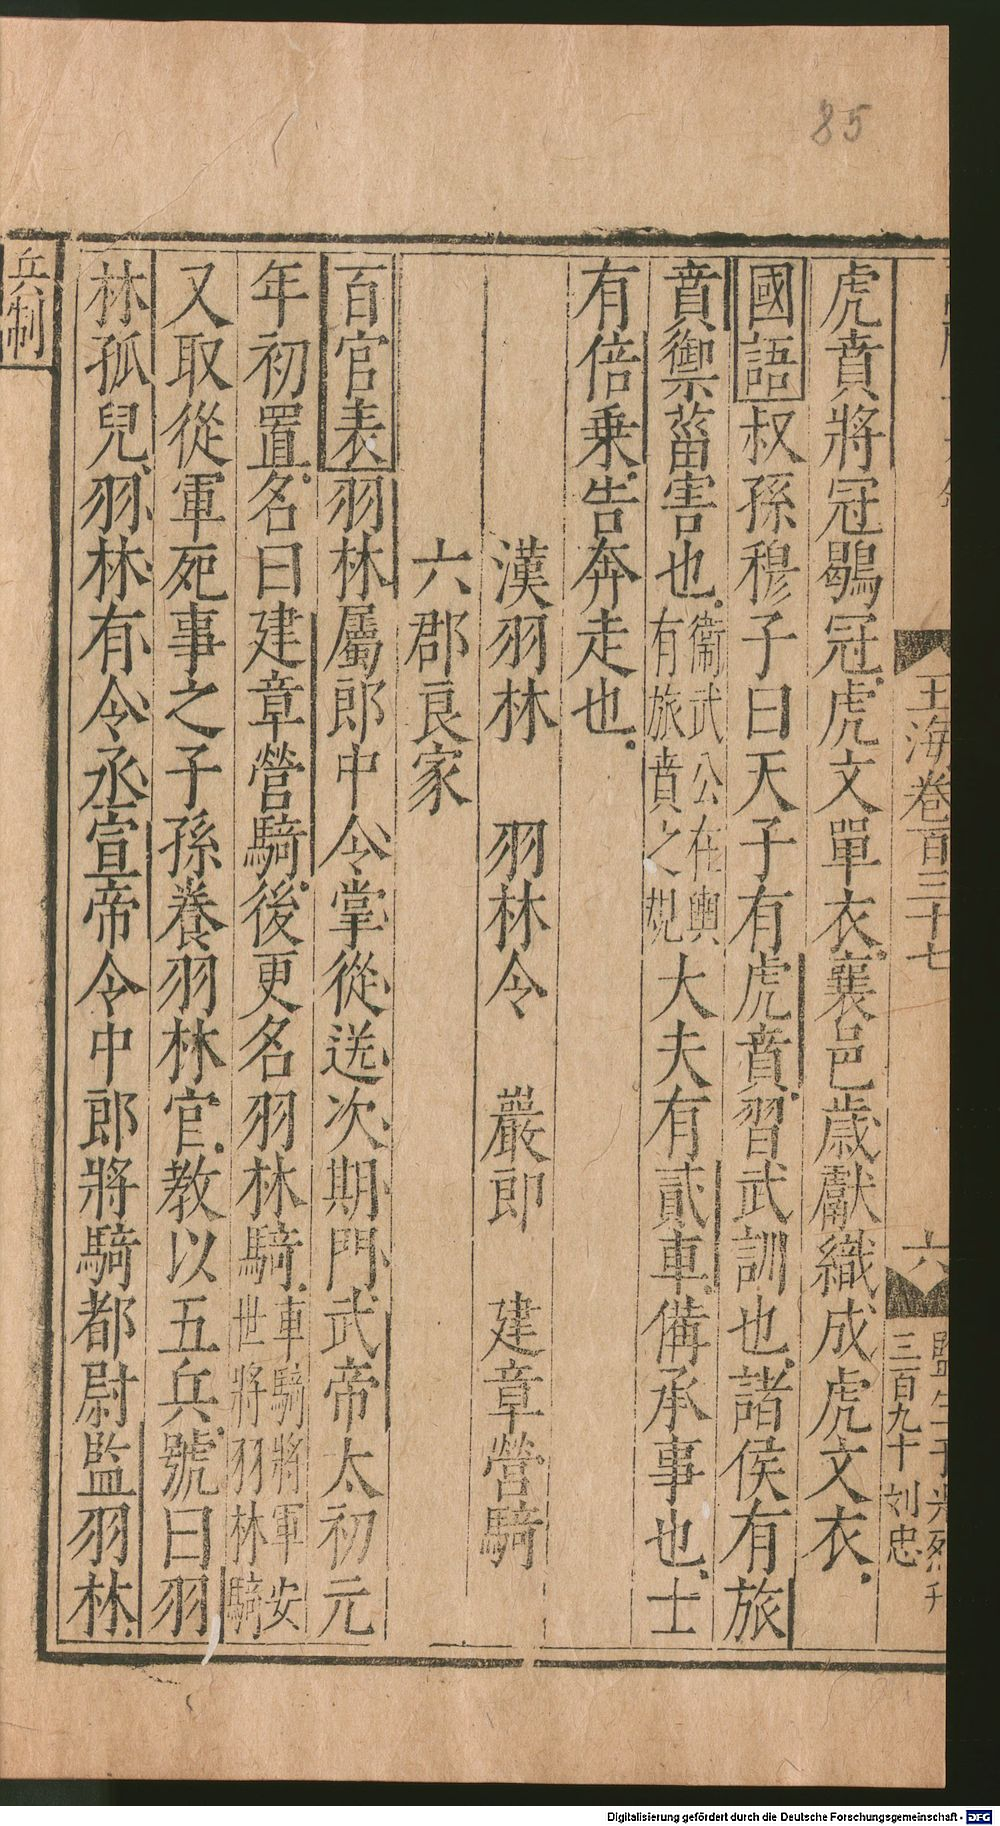 85
玉海卷百三十七
六
三百九十
刘忠
虎賁將冠鶡冠虎文單衣襄邑歲獻織成虎文衣
國語叔孫穆子曰天子有虎賁習武訓也諸侯有旅
賁禦菑害也衞武公在輿有旅賁之規大夫有貳車備承事也士
有倍乗告奔走也
漢羽林 羽林令 巖郎 建章營騎
六郡良家
百官表羽林屬郎中令掌從送次期門武帝太初元
年初置名曰建章營騎後更名羽林騎車騎將軍安世將羽林騎
又取從軍死事之子孫養羽林官教以五兵號曰羽
林孤兒羽林有令丞宣帝令中郎將騎都尉監羽林
兵制
Digitalisierung gefördert durch die Deutsche Forschungsgemeinschaft - DFG